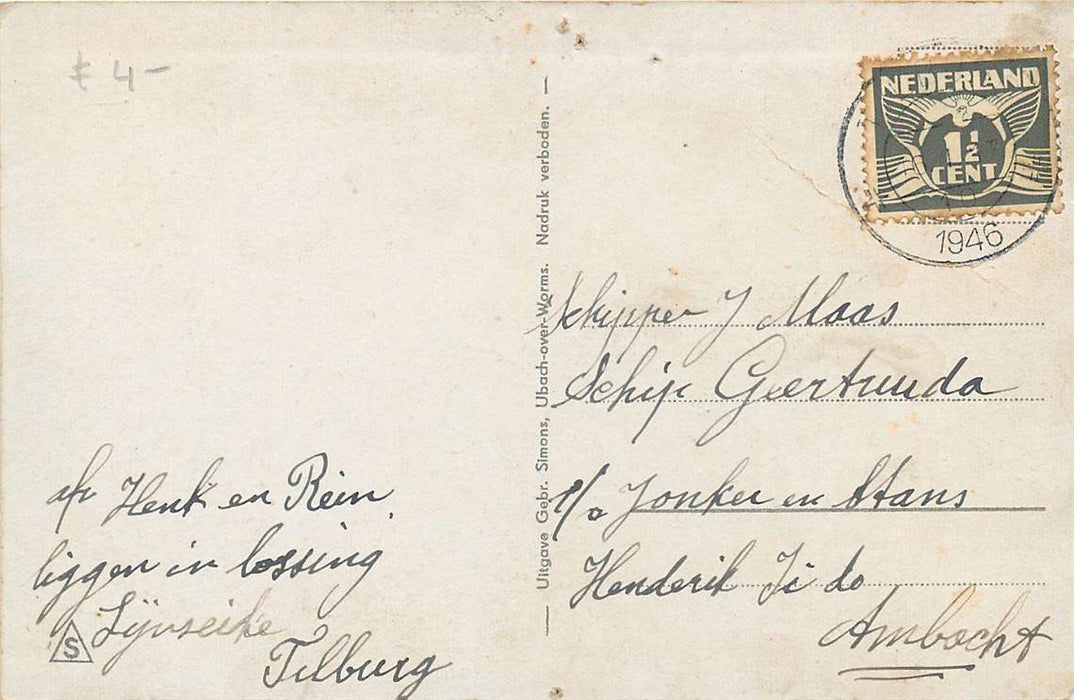 € 4-
NEDERLAND
1½
CENT
1946
Uitgave Gebr. Simons, Ubach-over-Worms. Nadruk verboden.
Schipper J Maas
Schip Geertruuda
p/a Jonker en Stans
Henderik Ji do
Ambacht
afz Henk en Rein
liggen in lossing
Tilburg
S